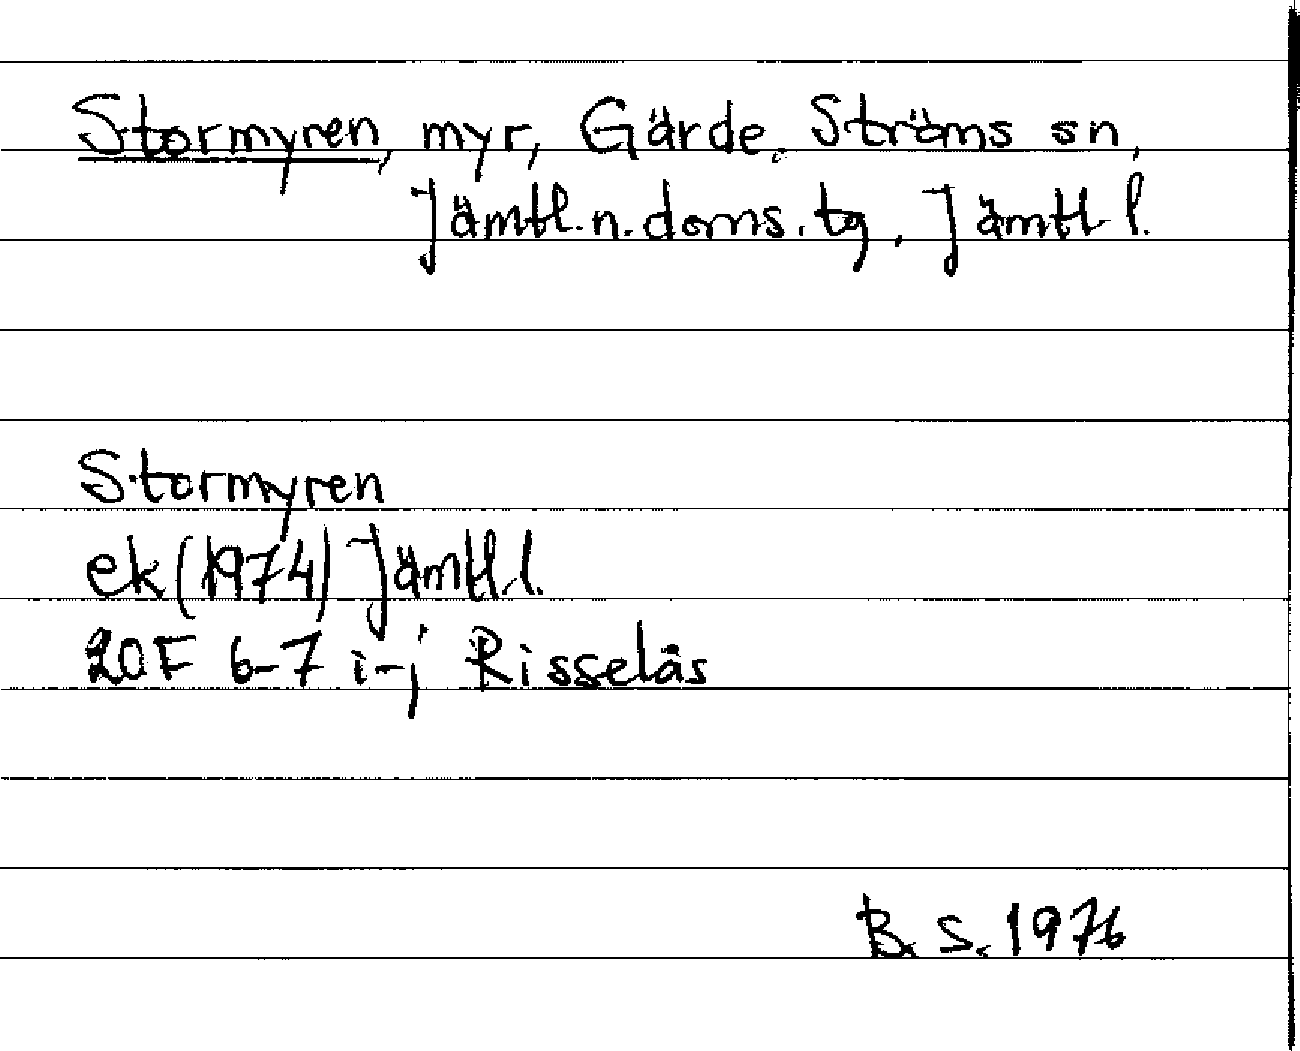 Stormyren, myr, Gärde, Ströms sn,
Jämtl.n.doms.tg, Jämtl l.
Stormyren
ek (1974) Jämtl.l.
20F 6-7 i-j Risselås
B.S. 1976